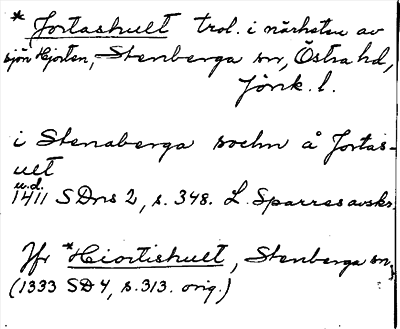 * Jortashult trol. i närheten av
sjön Hjorten, Stenberga sn, Östra hd,
Jönk. l.
i Stenaberga sochn å Jortas-
ult
u.d.
1411 SDns 2, s. 348. L. Sparres avskr.
Jfr *Hiortishult, Stenberga sn,
(1333 SD 4, s. 313. orig.)